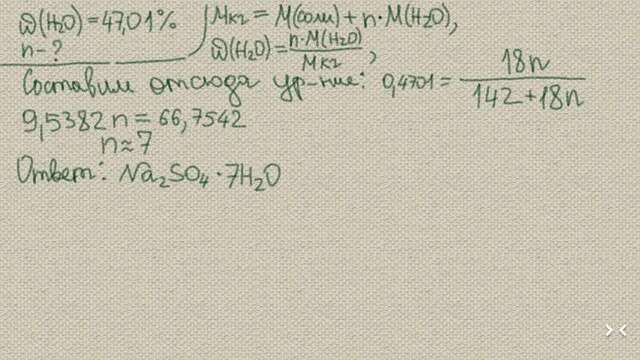 ω(H₂O) = 47,01%
n - ?
Mкг = M(соли) + n·M(H₂O),
ω(H₂O) = n·M(H₂O) / Mкг,
Составим отсюда ур-ние: 0,4701 = 18n / 142 + 18n
9,5382n = 66,7542
n ≈ 7
Ответ: Na₂SO₄ · 7H₂O